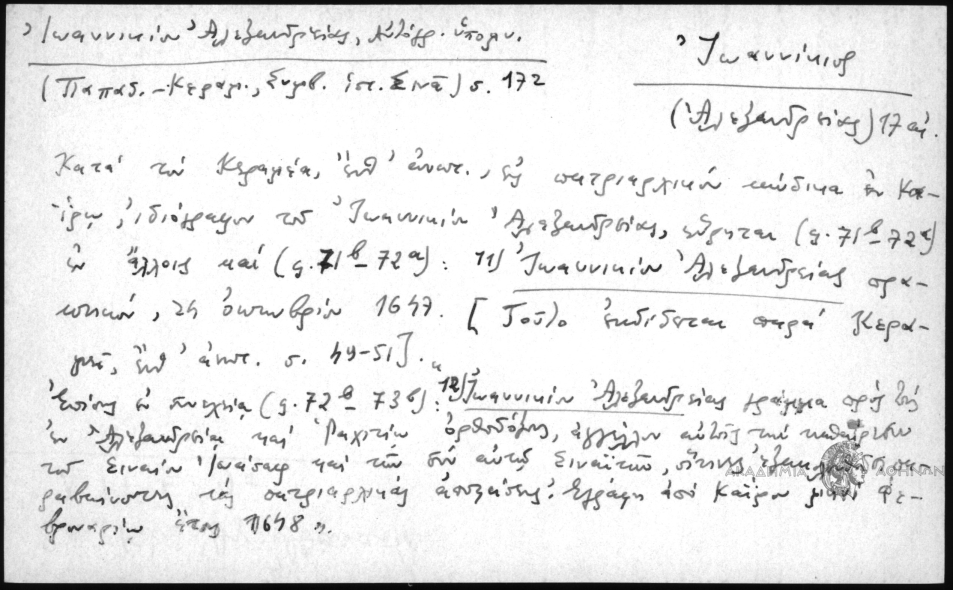 Ἰωαννικίου Ἀλεξανδρείας, Αὐτόγρ. ὑπομν.
(Παπαδ.-Κεραμ., Συμβ. ἱστ. Σινᾶ) σ. 172
Ἰωαννίκιος
(Ἀλεξανδρείας) 17 αἰ.
Κατὰ τὸν Κεραμέα, ἔνθ' ἀνωτ., εἰς πατριαρχικὸν κώδικα ἐν Κα-
ΐρῳ, ἰδιόγραφον τοῦ Ἰωαννικίου Ἀλεξανδρείας, εὕρηται (φ. 71b-72a)
ἐν ἄλλοις καὶ (φ. 71b-72a): 11) Ἰωαννικίου Ἀλεξανδρείας πρα-
κτικόν, 24 ὀκτωβρίου 1647. [Τοῦτο ἐκδίδεται παρὰ Κερα-
μεῖ, ἔνθ' ἀνωτ. σ. 49-51].
Ἐπίσης ἐν συνεχείᾳ (φ. 72b-73b): "12) Ἰωαννικίου Ἀλεξανδρείας γράμμα πρὸς τοὺς
ἐν Ἀλεξανδρείᾳ καὶ Ῥαχιτίῳ ὀρθοδόξους, ἀγγέλλον αὐτοῖς τὴν καθαίρεσιν
τοῦ Σιναίου Ἰωάσαφ καὶ τῶν σὺν αὐτῷ Σιναϊτῶν, οἵτινες πα-
ραβαίνοντες τὰς πατριαρχικὰς ἀποφάσεις. Ἐγράφη ἀπὸ Καΐρου μηνὶ Φε-
βρουαρίῳ ἔτους 1648".
ΑΚΑΔΗΜΙΑ ΑΘΗΝΩΝ